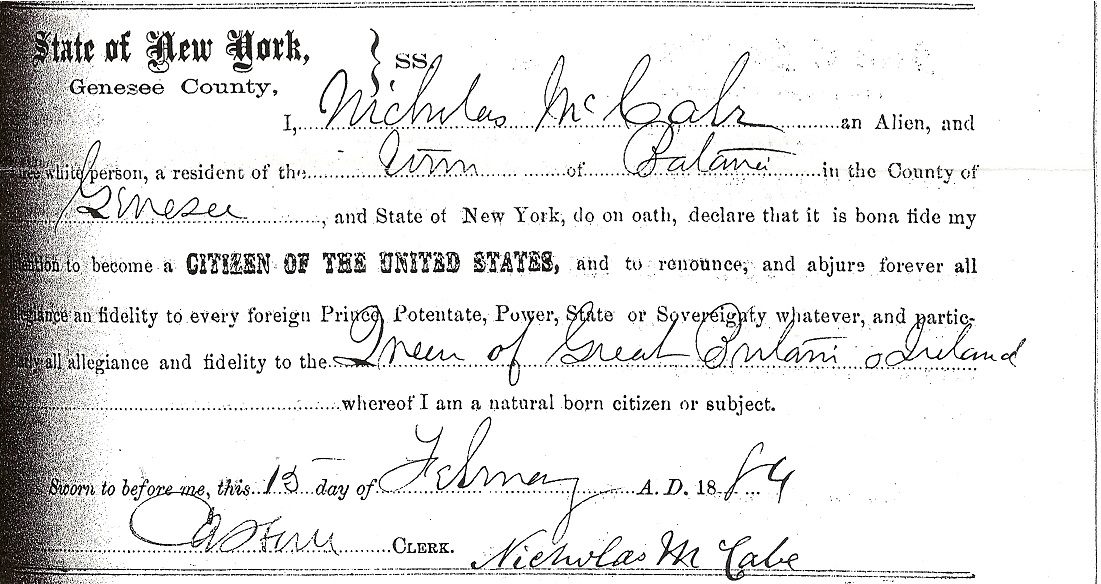 State of New York, } SS.
Genesee County,
I, Nicholas McCabe an Alien, and
free white person, a resident of the Town of Batavia in the County of
Genesee, and State of New York, do on oath, declare that it is bona fide my
intention to become a CITIZEN OF THE UNITED STATES, and to renounce, and abjure forever all
allegiance an fidelity to every foreign Prince, Potentate, Power, State or Sovereignty whatever, and partic-
all allegiance and fidelity to the Queen of Great Britain & Ireland
whereof I am a natural born citizen or subject.
Sworn to before me, this 15 day of February A. D. 1884
CLERK. Nicholas McCabe